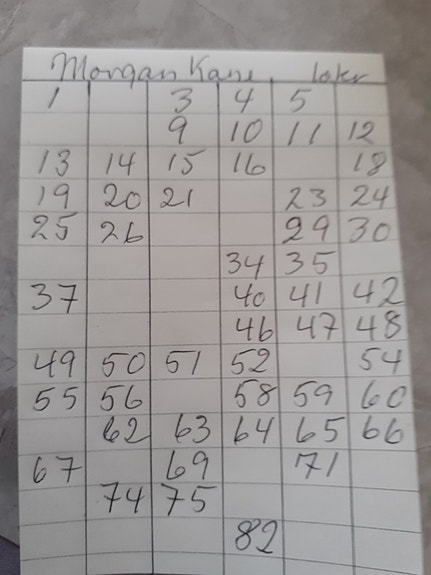 Morgan Kane. loker
1 3 4 5
9 10 11 12
13 14 15 16 18
19 20 21 23 24
25 26 29 30
34 35
37 40 41 42
46 47 48
49 50 51 52 54
55 56 58 59 60
62 63 64 65 66
67 69 71
74 75
82